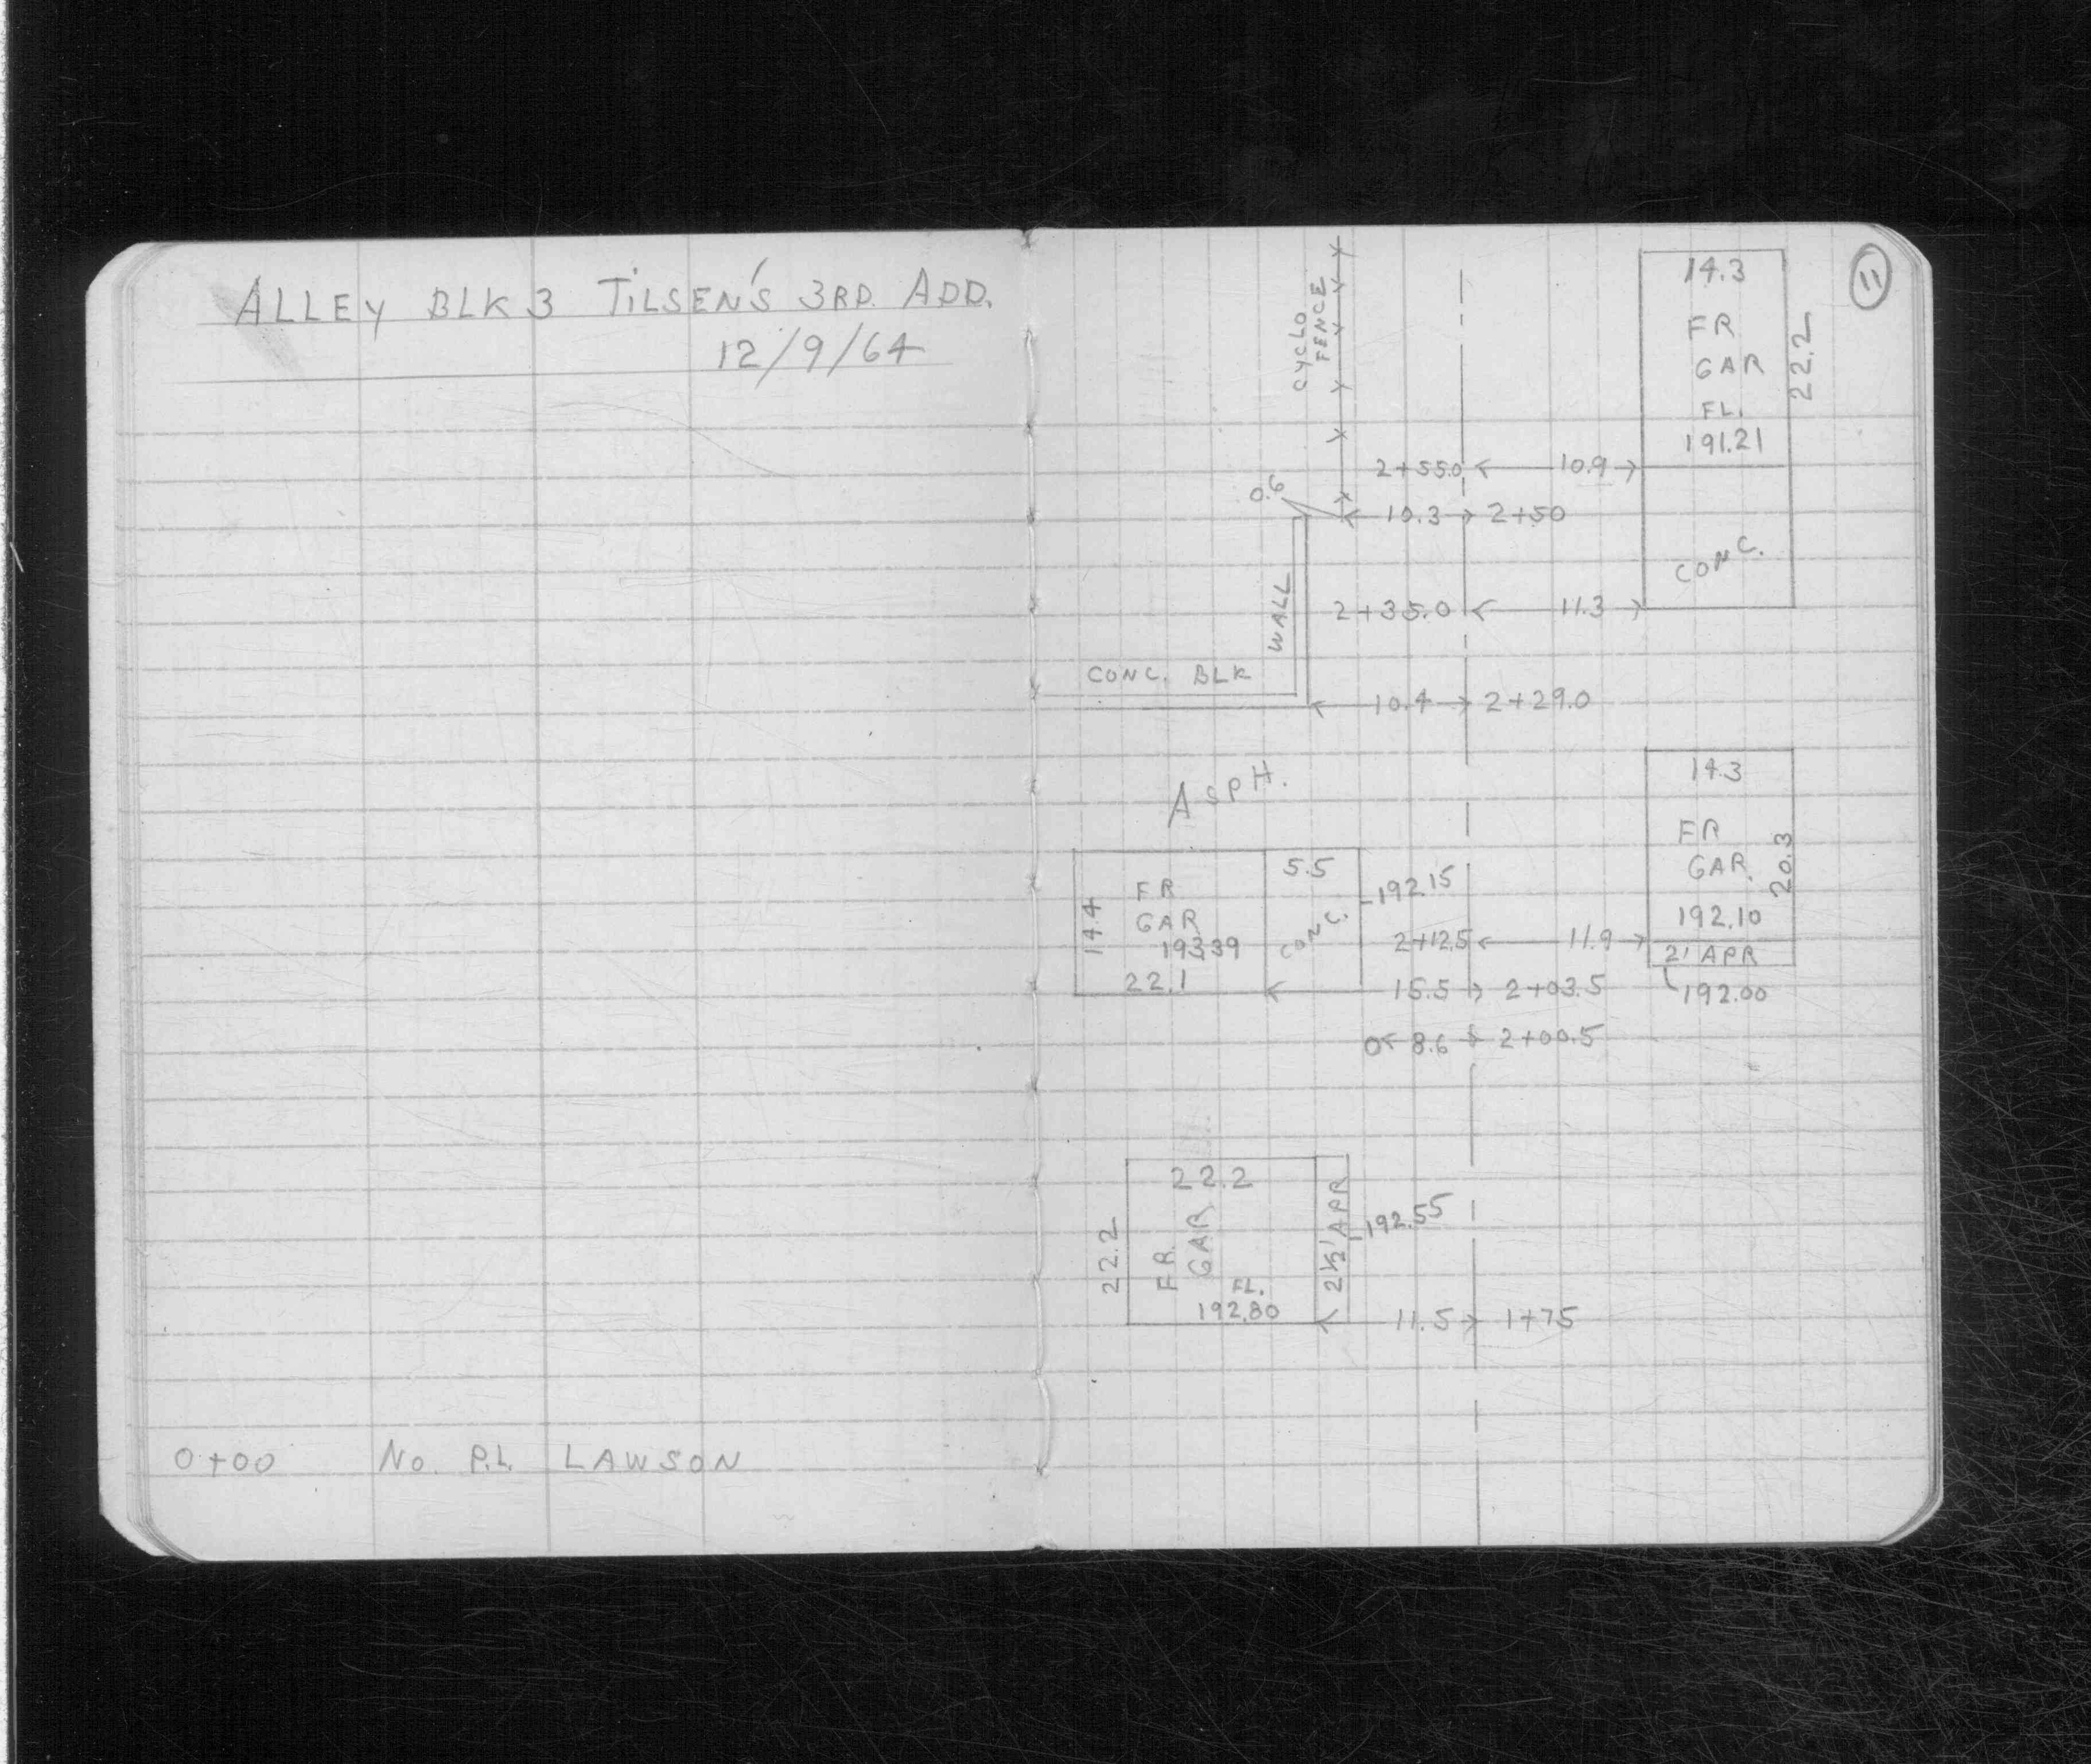 ALLEY BLK 3 TILSEN'S 3RD. ADD.
12/9/64
0+00 No. P.L. LAWSON
11
14.3
FR
GAR
FL.
191.21
22.2
CYCLO
FENCE
2+55.0 10.9
0.6
10.3 2+50
CONC.
WALL
2+35.0 11.3
CONC. BLK
10.4 2+29.0
ASPH.
14.3
FR
GAR.
20.3
192.10
2' APR
192.00
14.4
FR
GAR
193.39
22.1
5.5
CONC.
192.15
2+12.5 11.9
15.5 2+03.5
8.6 2+00.5
22.2
22.2
FR.
GAR
FL.
192.80
2½' APR
192.55
11.5 1+75